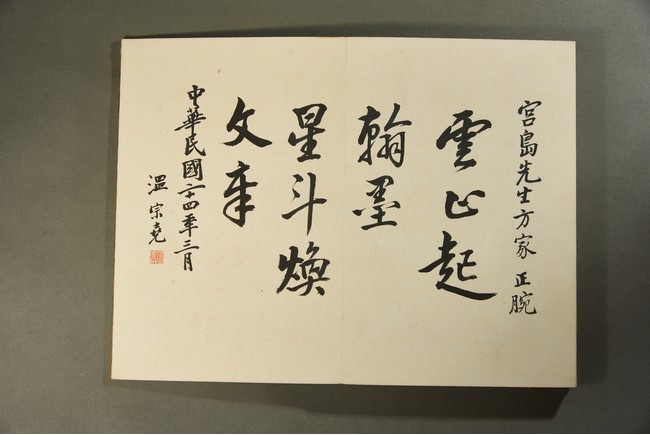 宮島先生方家 正腕
雲山起
翰墨
星斗煥
文章
中華民國二十四年三月
溫宗堯